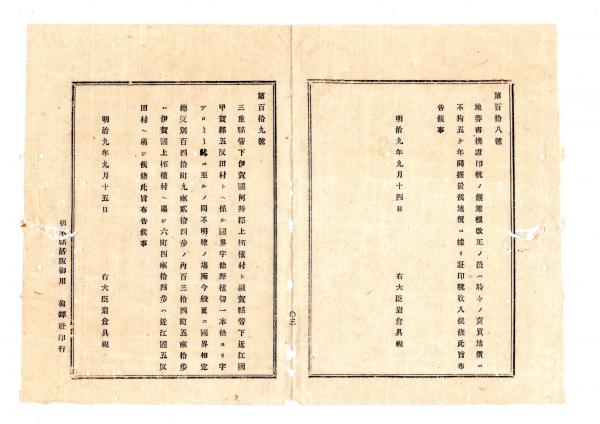 第百拾八號
地券書換證印税ノ儀地租改正ノ後ハ時々ノ賣買地價ニ
不拘五ケ年間据置候地價ニ據リ証印税收入候條此旨布
告候事
明治九年九月十四日
右大臣岩倉具視
〇三
第百拾九號
三重縣管下伊賀國阿拜郡上柘植村ト滋賀縣管下近江國
甲賀郡五反田村トヘ係ル國界字餘野植切一本松ヨリ字
ニ至ルノ間不明瞭ノ場所今般更ニ國界相定
總反別百四拾町九畝貳拾四歩ノ内百三拾四町五畝拾歩
ハ伊賀國上柘植村ヘ屬シ六町四畝拾四歩ハ近江國五反
田村ヘ屬シ候條此旨布告候事
明治九年九月十五日
右大臣岩倉具視
栃木縣活版御用 鐸社印行